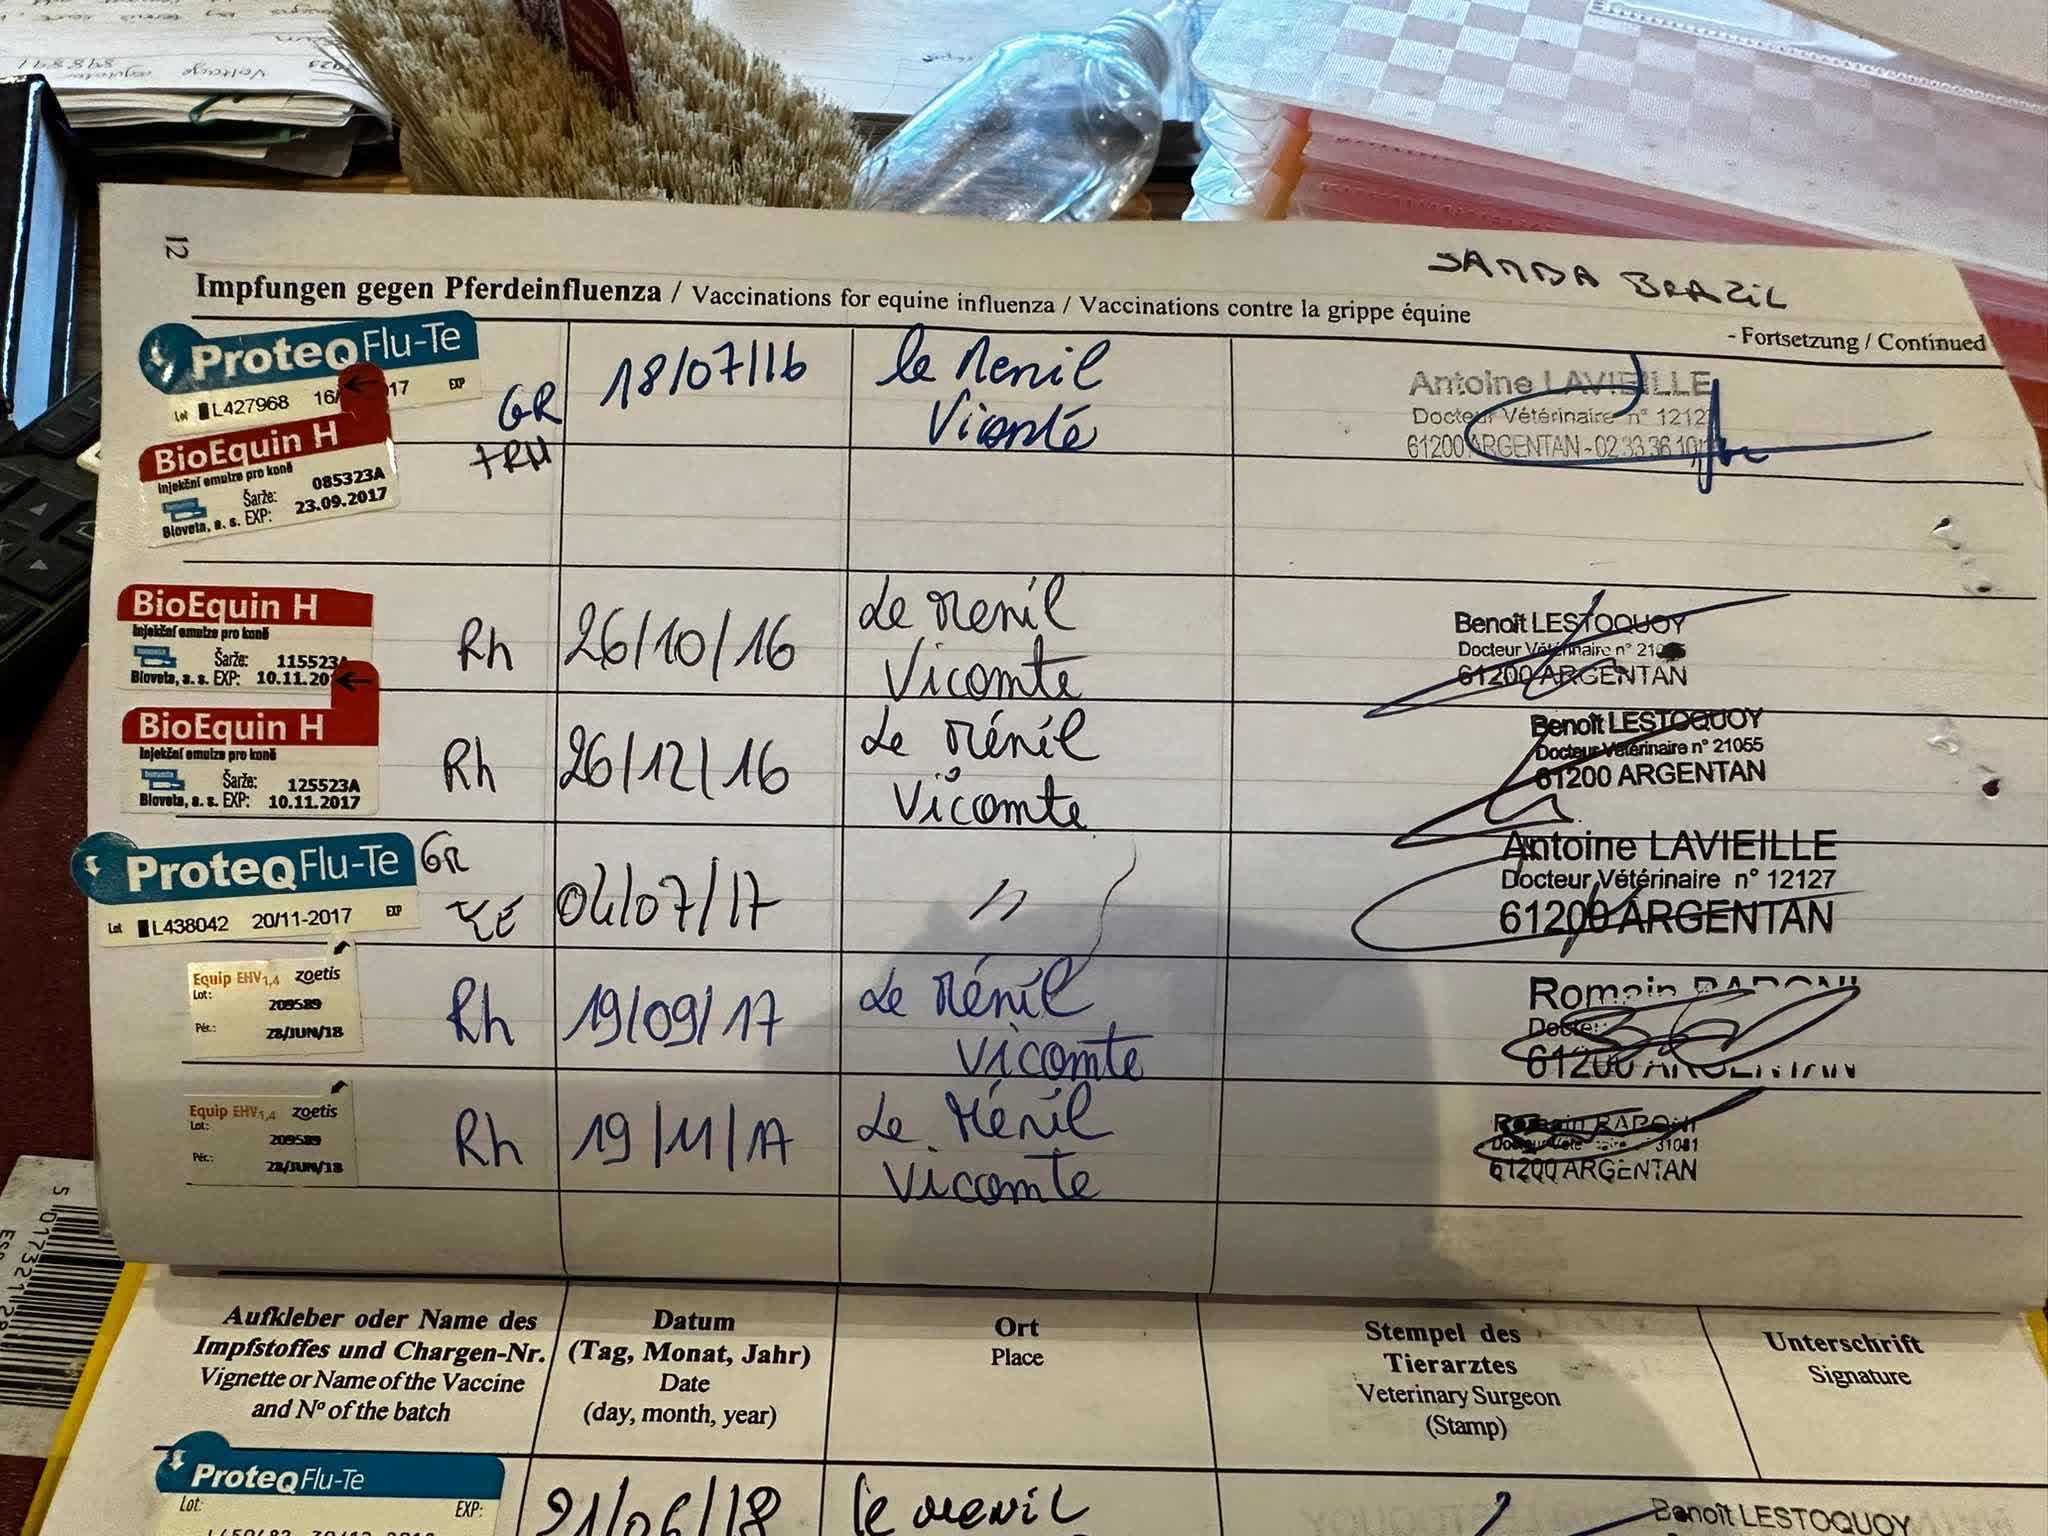 Voltage regulator
12
SAMBA BRAZIL
Impfungen gegen Pferdeinfluenza / Vaccinations for equine influenza / Vaccinations contre la grippe équine
- Fortsetzung / Continued
ProteqFlu-Te
Lot L427968 16/ 17 EXP
GR
+RH
18/07/16
le Menil
Vicomte
Antoine LAVIEILLE
Docteur Vétérinaire n° 12127
61200 ARGENTAN - 02 33 36 10
BioEquin H
Injekční emulze pro koně
Šarže: 085323A
Bioveta, a. s. EXP: 23.09.2017
BioEquin H
Injekční emulze pro koně
Šarže: 115523A
Bioveta, a. s. EXP: 10.11.20
Rh
26/10/16
Le Menil
Vicomte
Benoît LESTOQUOY
Docteur Vétérinaire n° 210
61200 ARGENTAN
BioEquin H
Injekční emulze pro koně
Šarže: 125523A
Bioveta, a. s. EXP: 10.11.2017
Rh
26/12/16
Le Ménil
Vicomte
Benoît LESTOQUOY
Docteur Vétérinaire n° 21055
61200 ARGENTAN
ProteqFlu-Te
Lot L438042 20/11-2017 EXP
GR
TE
04/07/17
"
Antoine LAVIEILLE
Docteur Vétérinaire n° 12127
61200 ARGENTAN
Equip EHV1,4 zoetis
Lot:
209589
Pér.:
28/JUN/18
Rh
19/09/17
Le Ménil
Vicomte
Romain BARONI
Docteur
61200 ARGENTAN
Equip EHV1,4 zoetis
Lot:
209589
Pér.:
28/JUN/18
Rh
19/11/17
Le Ménil
Vicomte
Romain BARONI
Docteur Vétérinaire n° 31081
61200 ARGENTAN
Aufkleber oder Name des
Impfstoffes und Chargen-Nr.
Vignette or Name of the Vaccine
and N° of the batch
Datum
(Tag, Monat, Jahr)
Date
(day, month, year)
Ort
Place
Stempel des
Tierarztes
Veterinary Surgeon
(Stamp)
Unterschrift
Signature
ProteqFlu-Te
Lot: EXP:
21/06/18
le menil
Benoît LESTOQUOY